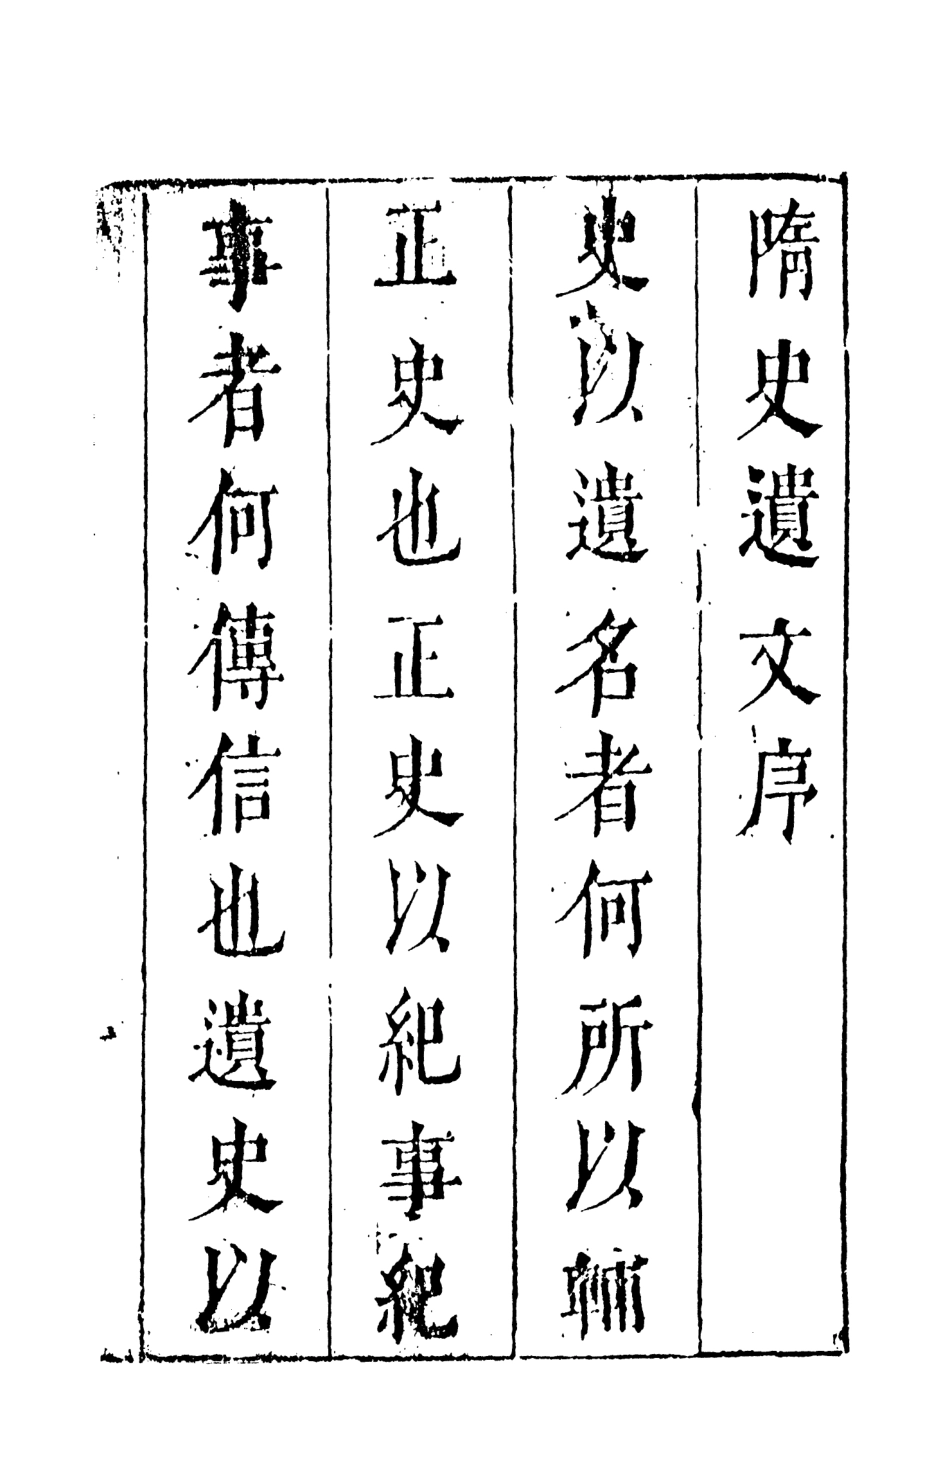 隋史遺文序
史以遺名者何所以輔
正史也正史以紀事紀
事者何傳信也遺史以